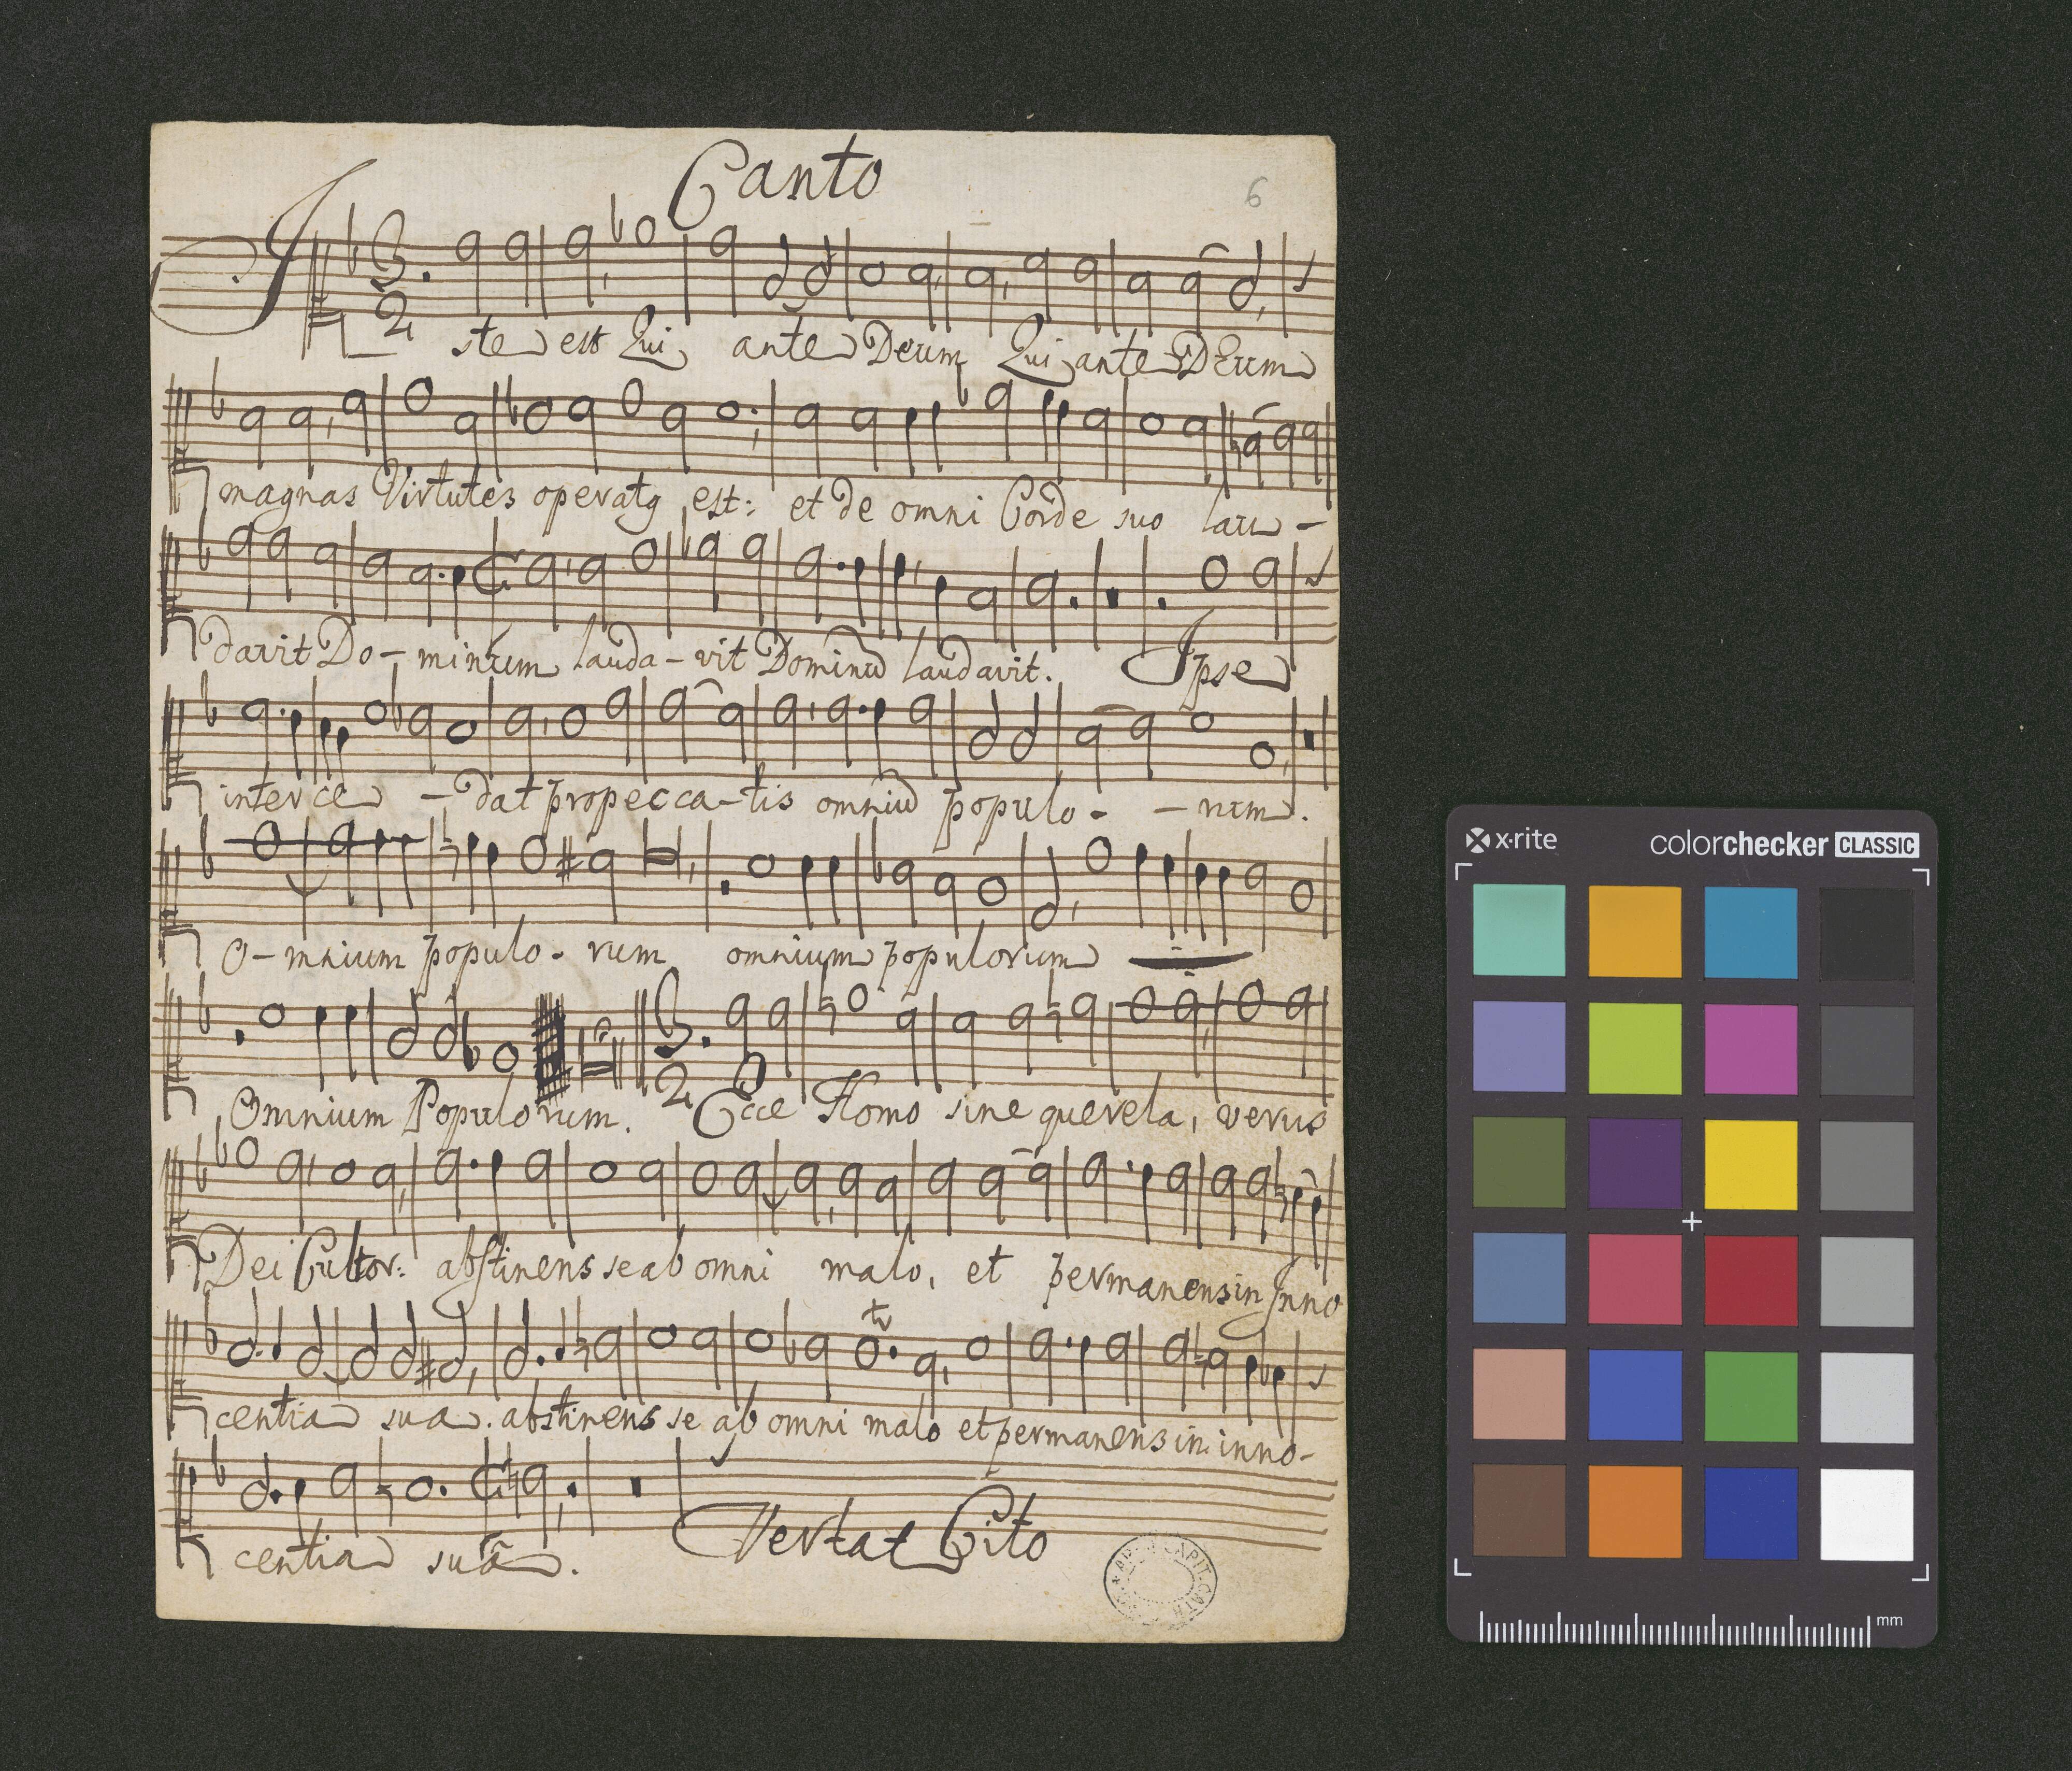 Canto
6
Iste est Qui ante Deum Qui ante DEum
magnas Virtutes operatg est: et de omni Corde suo lau-
davit Do-minum lauda-vit Dominũ laudavit. Ipse
interce - dat pro pecca-tis omniũ populo- -rum.
O-mnium populo-rum omnium populorum
Omnium Populorum. Ecce Homo sine querela, verus
Dei Cultor: abstinens se ab omni malo, et permanens in Inno
centia sua. abstinens se ab omni malo et permanens in inno-
centia suã.
Vertat Cito
x-rite colorchecker CLASSIC
mm